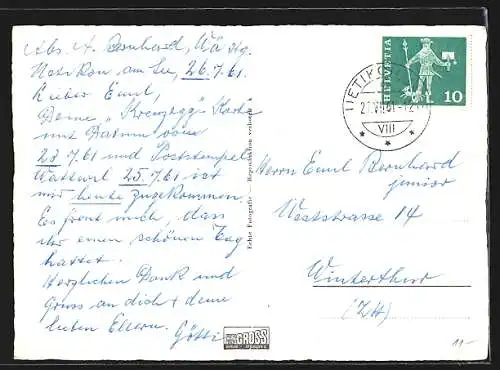 Abs. A. Bernhard,
Uetikon am See, 26.7.61.
Lieber Emil,
Deine "Kreuzegg" Karte
mit Datum vom
23.7.61 und Poststempel
Wattwil 25.7.61 ist
mir heute zugekommen.
Es freut mich, dass
ihr einen schönen Tag
hattet.
Herzlichen Dank und
Gruss an dich + deine
lieben Eltern. Götti
Echte Fotografie - Reproduktion verboten
GROSS
HELVETIA
10
UETIKON
VIII
Herrn Emil Bernhard
junior
Weststrasse 14
Winterthur
(ZH)